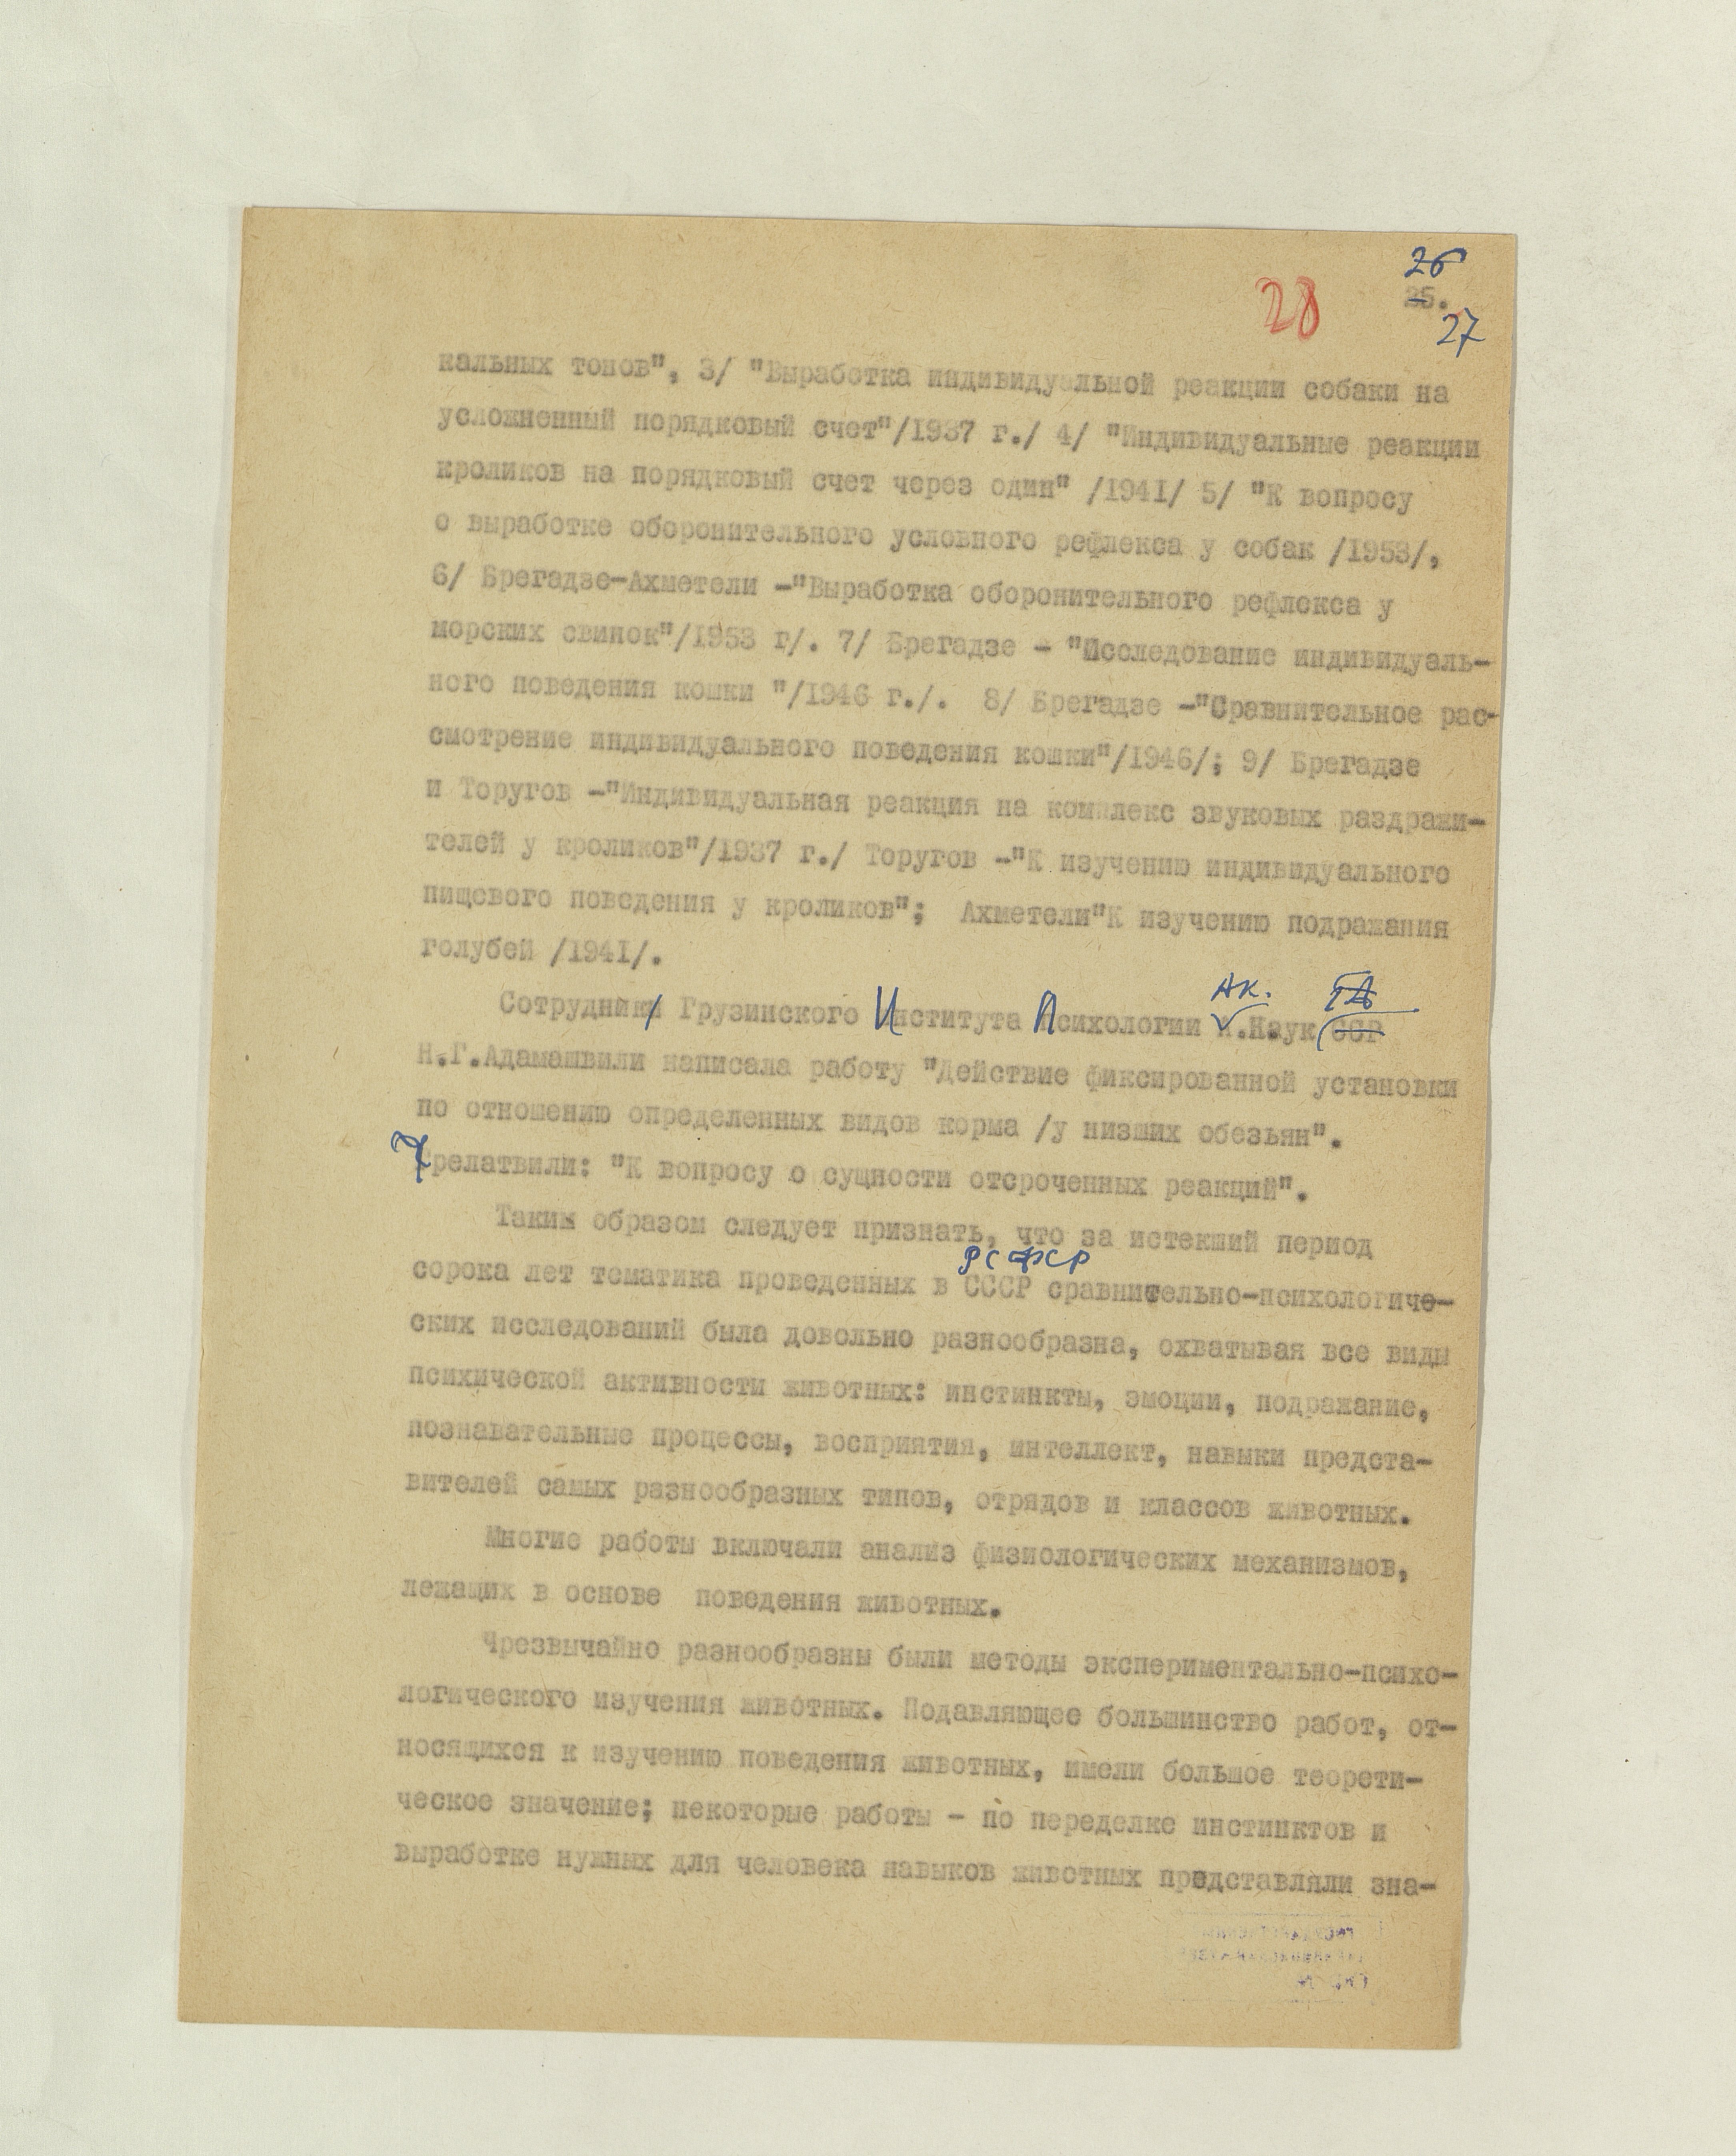 26
28
25.
27
кальных тонов", 3/ "Выработка индивидуальной реакции собаки на
усложненный порядковый счет"/1937 г./ 4/ "Индивидуальные реакции
кроликов на порядковый счет через один" /1941/ 5/ "К вопросу
о выработке оборонительного условного рефлекса у собак /1953/,
6/ Брегадзе-Ахметели -"Выработка оборонительного рефлекса у
морских свинок"/1953 г/. 7/ Брегадзе - "Исследование индивидуаль-
ного поведения кошки "/1946 г./. 8/ Брегадзе -"Сравнительное рас-
смотрение индивидуального поведения кошки"/1946/; 9/ Брегадзе
и Торугов -"Индивидуальная реакция на комплекс звуковых раздражи-
телей у кроликов"/1937 г./ Торугов -"К изучению индивидуального
пищевого поведения у кроликов"; Ахметели"К изучению подражания
голубей /1941/.
Ак.
Сотрудник Грузинского Института Психологии А.Наук ССР
Н.Г.Адамашвили написала работу "Действие фиксированной установки
по отношению определенных видов корма /у низших обезьян".
Трелатвили: "К вопросу о сущности отсроченных реакций".
Таким образом следует признать, что за истекший период
РСФСР
сорока лет тематика проведенных в СССР сравнительно-психологиче-
ских исследований была довольно разнообразна, охватывая все виды
психической активности животных: инстинкты, эмоции, подражание,
познавательные процессы, восприятия, интеллект, навыки предста-
вителей самых разнообразных типов, отрядов и классов животных.
Многие работы включали анализ физиологических механизмов,
лежащих в основе поведения животных.
Чрезвычайно разнообразны были методы экспериментально-психо-
логического изучения животных. Подавляющее большинство работ, от-
носящихся к изучению поведения животных, имели большое теорети-
ческое значение; некоторые работы - по переделке инстинктов и
выработке нужных для человека навыков животных представляли зна-